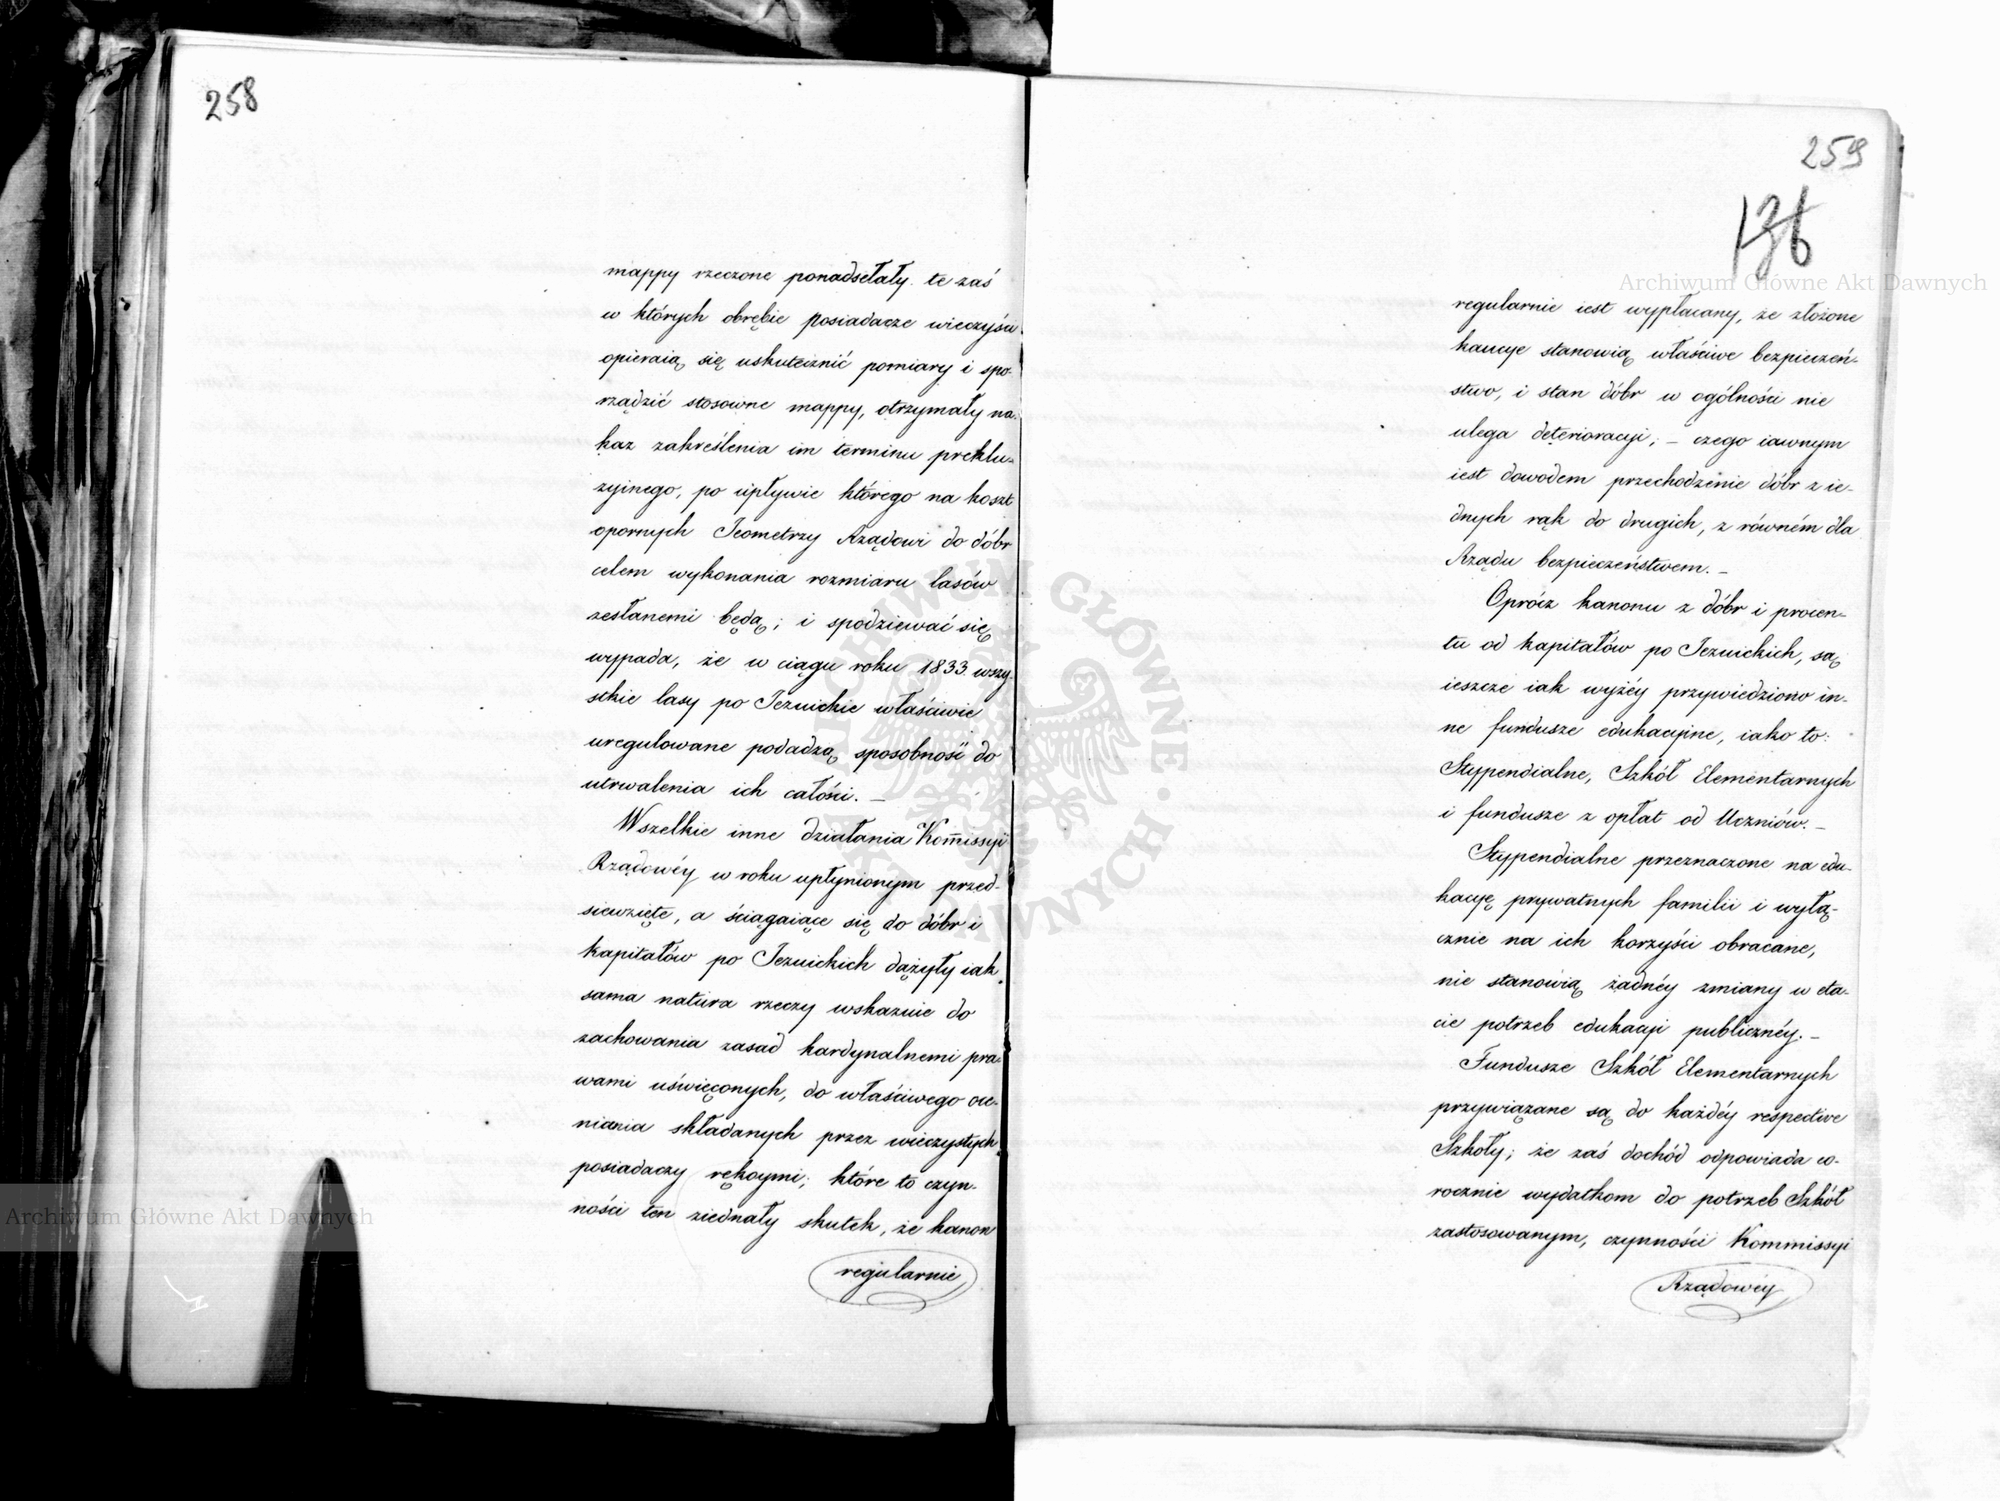 258
mappy rzeczone ponadsełały. te zaś
w których obrębie posiadacze wieczyści
opieraią się uskutecznić pomiary i spo-
rządzić stosowne mappy, otrzymały na-
kaz zakreślenia im terminu preklu-
zyinego, po upływie którego na koszt
opornych Jeometrzy Rządowi do dóbr
celem wykonania rozmiaru lasów
zesłanemi będą; i spodziewać się
wypada, że w ciągu roku 1833. wszy-
stkie lasy po Jezuickie właściwie
uregulowane podadzą sposobność do
utrwalenia ich całości. –
Wszelkie inne działania Kommissyi
Rządowéy w roku upłynionym przed-
siewzięte, a ściągaiące się do dóbr i
kapitałów po Jezuickich dążyły iak
sama natura rzeczy wskazuie do
zachowania zasad kardynalnemi pra-
wami uświęconych, do właściwego oce-
niania składanych przez wieczystych
posiadaczy rękoymi; które to czyn-
ności ten ziednały skutek, że kanon
regularnie
259
136
regularnie iest wypłacany, że złożone
kaucye stanowią właściwe bezpieczeń-
stwo, i stan dóbr w ogólności nie
ulega deterioracyi; – czego iawnym
iest dowodem przechodzenie dóbr z ie-
dnych rąk do drugich, z równém dla
Rządu bezpieczeństwem. –
Oprócz kanonu z dóbr i procen-
tu od kapitałów po Jezuickich, są
ieszcze iak wyżéy przywiedziono in-
ne fundusze edukacyine, iako to:
Stypendialne, Szkół Elementarnych
i fundusze z opłat od Uczniów. –
Stypendialne przeznaczone na edu-
kacyę prywatnych familii i wyłą-
cznie na ich korzyści obracane,
nie stanowią żadnéy zmiany w eta-
cie potrzeb edukacyi publicznéy. –
Fundusze Szkół Elementarnych
przywiązane są do każdéy respective
Szkoły; że zaś dochód odpowiada co-
rocznie wydatkom do potrzeb Szkół
zastosowanym, czynności Kommissyi
Rządowéy
Archiwum Główne Akt Dawnych
Archiwum Główne Akt Dawnych
ARCHIWUM GŁÓWNE AKT DAWNYCH